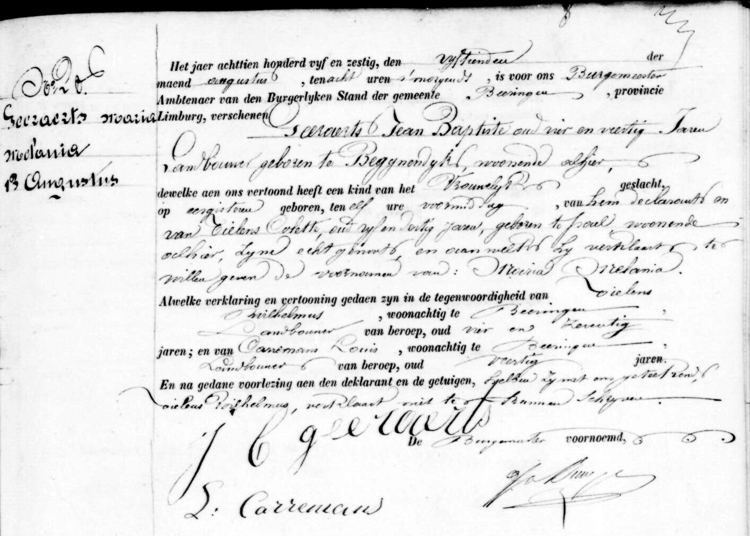 No 20.
Geeraerts Maria
Melania
13 Augustus
Het jaer achttien honderd vyf en zestig, den vyftienden der
maend augustus, ten acht uren 's morgends, is voor ons Burgemeester
Ambtenaer van den Burgerlyken Stand der gemeente Beeringen, provincie
Limburg, verschenen Geeraerts Jean Baptiste oud vier en veertig Jaren
Landbouwer geboren te Begynendyk, woonende alhier,
dewelke aen ons vertoond heeft een kind van het Vrouwelyk geslacht,
op eergisteren geboren, ten elf ure voormiddag, van hem declarant en
van Tielens Colette, oud vyf en dertig jaren, geboren te woonende
alhier, zyne echtgenoote, en aan welke hy verklaart te
willen geven de voornamen van: Maria Melania.
Alwelke verklaring en vertooning gedaen zyn in de tegenwoordigheid van Tielens
Wilhelmus, woonachtig te Beeringen,
Landbouwer van beroep, oud vier en zeventig
jaren; en van Carremans Louis, woonachtig te Beeringen
Landbouwer van beroep, oud veertig jaren.
En na gedane voorlezing aen den deklarant en de getuigen, hebben zy met ons geteekend,
Tielens Wilhelmus, verklaart niet te kunnen schryven.
J B geeraerts
De Burgemeester voornoemd,
L. Carremans